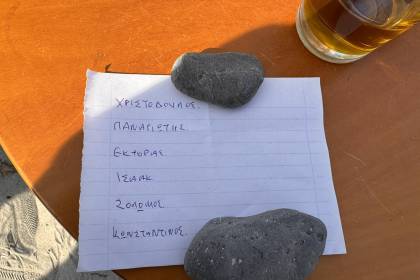 ΧΡΙΣΤΟΒΟΥΛΟΣ.
ΠΑΝΑΓΙΩΤΗΣ
ΕΚΤΟΡΑΣ
ΙΣΑΑΚ
ΣΟΛΩΜΟΣ
ΚΩΝΣΤΑΝΤΙΝΟΣ.